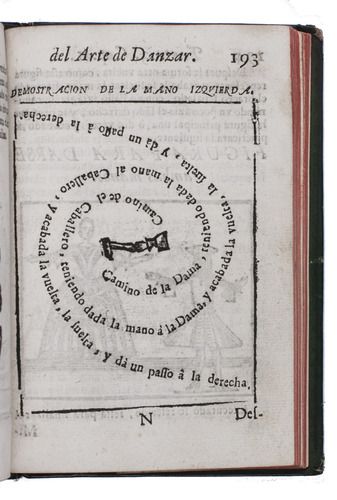 del Arte de Danzar. 193
DEMOSTRACION DE LA MANO IZQVIERDA.
Camino de la Dama, teniendo dada la mano al Caballero, Y acabada la vuelta, la suelta, y dà un passo à la derecha.
Camino de el Caballero, teniendo dada la mano à la Dama, y acabada la vuelta, la suelta, y dà un passo à la derecha.
N Des-